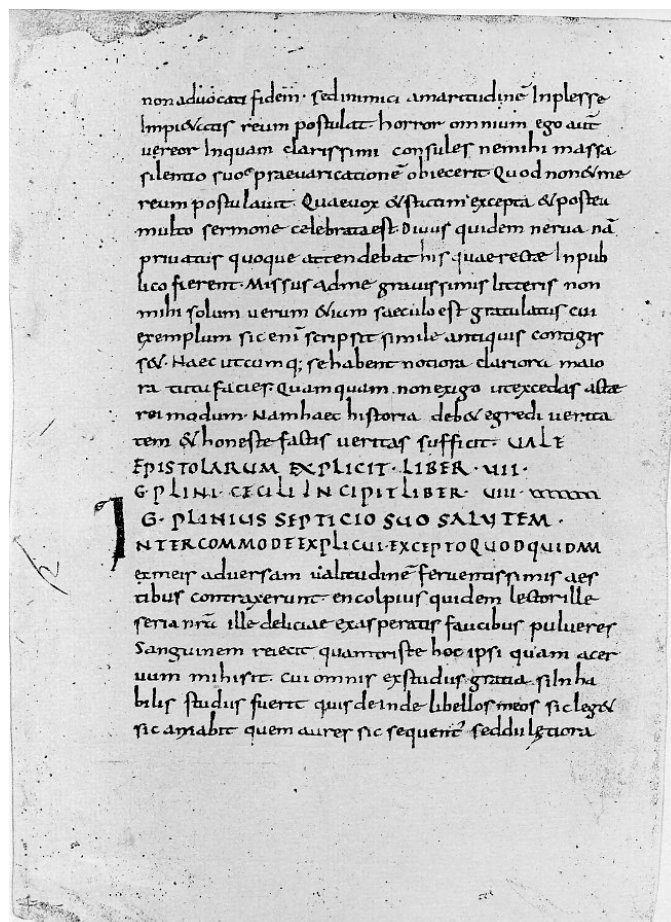 non advocati fidem · sed inimici amaritudinē Inplesse
Impi&atis reum postulat · horror omnium ego aut̄
vereor Inquam clarissimi consules ne mihi massa
silentio suo praevaricationē obiecerit · Quod non & me
reum postulavit · Quae vox & statim excepta & postea
multo sermone celebrata est · Divus quidem nerva nā
privatus quoque attendebat his quae recte In pub
lico fierent · Missis ad me gravissimis litteris non
mihi solum verum &iam saeculo est gratulatus cui
exemplum sic enī scripsit simile antiquis contigis
s& · Haec utcumq; se habent notiora clariora maio
ra tu facies · Quamquam non exigo ut excedas actae
rei modum · Nam haec historia deb& egredi verita
tem & honeste factis veritas sufficit · UALE
EPISTOLARUM EXPLICIT · LIBER · UII ·
G · PLINI · CECILI INCIPIT LIBER · UIII
G · PLINIUS SEPTICIO SUO SALUTEM ·
INTER COMMODE EXPLICUI · EXCEPTO QUOD QUIDAM
ex meis adversam valitudinē ferventissimis aes
tibus contraxerunt · encolpius quidem lector ille
seria nr̄a ille deliciae exasperatis faucibus pulveres
Sanguinem reiecit quam triste hoc ipsi quam acer
vum mihi sit · cui omnis ex studiis gratia si Inha
bilis studiis fuerit quis deinde libellos meos sic leg&
sic amabit quem aures sic sequent᷑ sed di laetiora